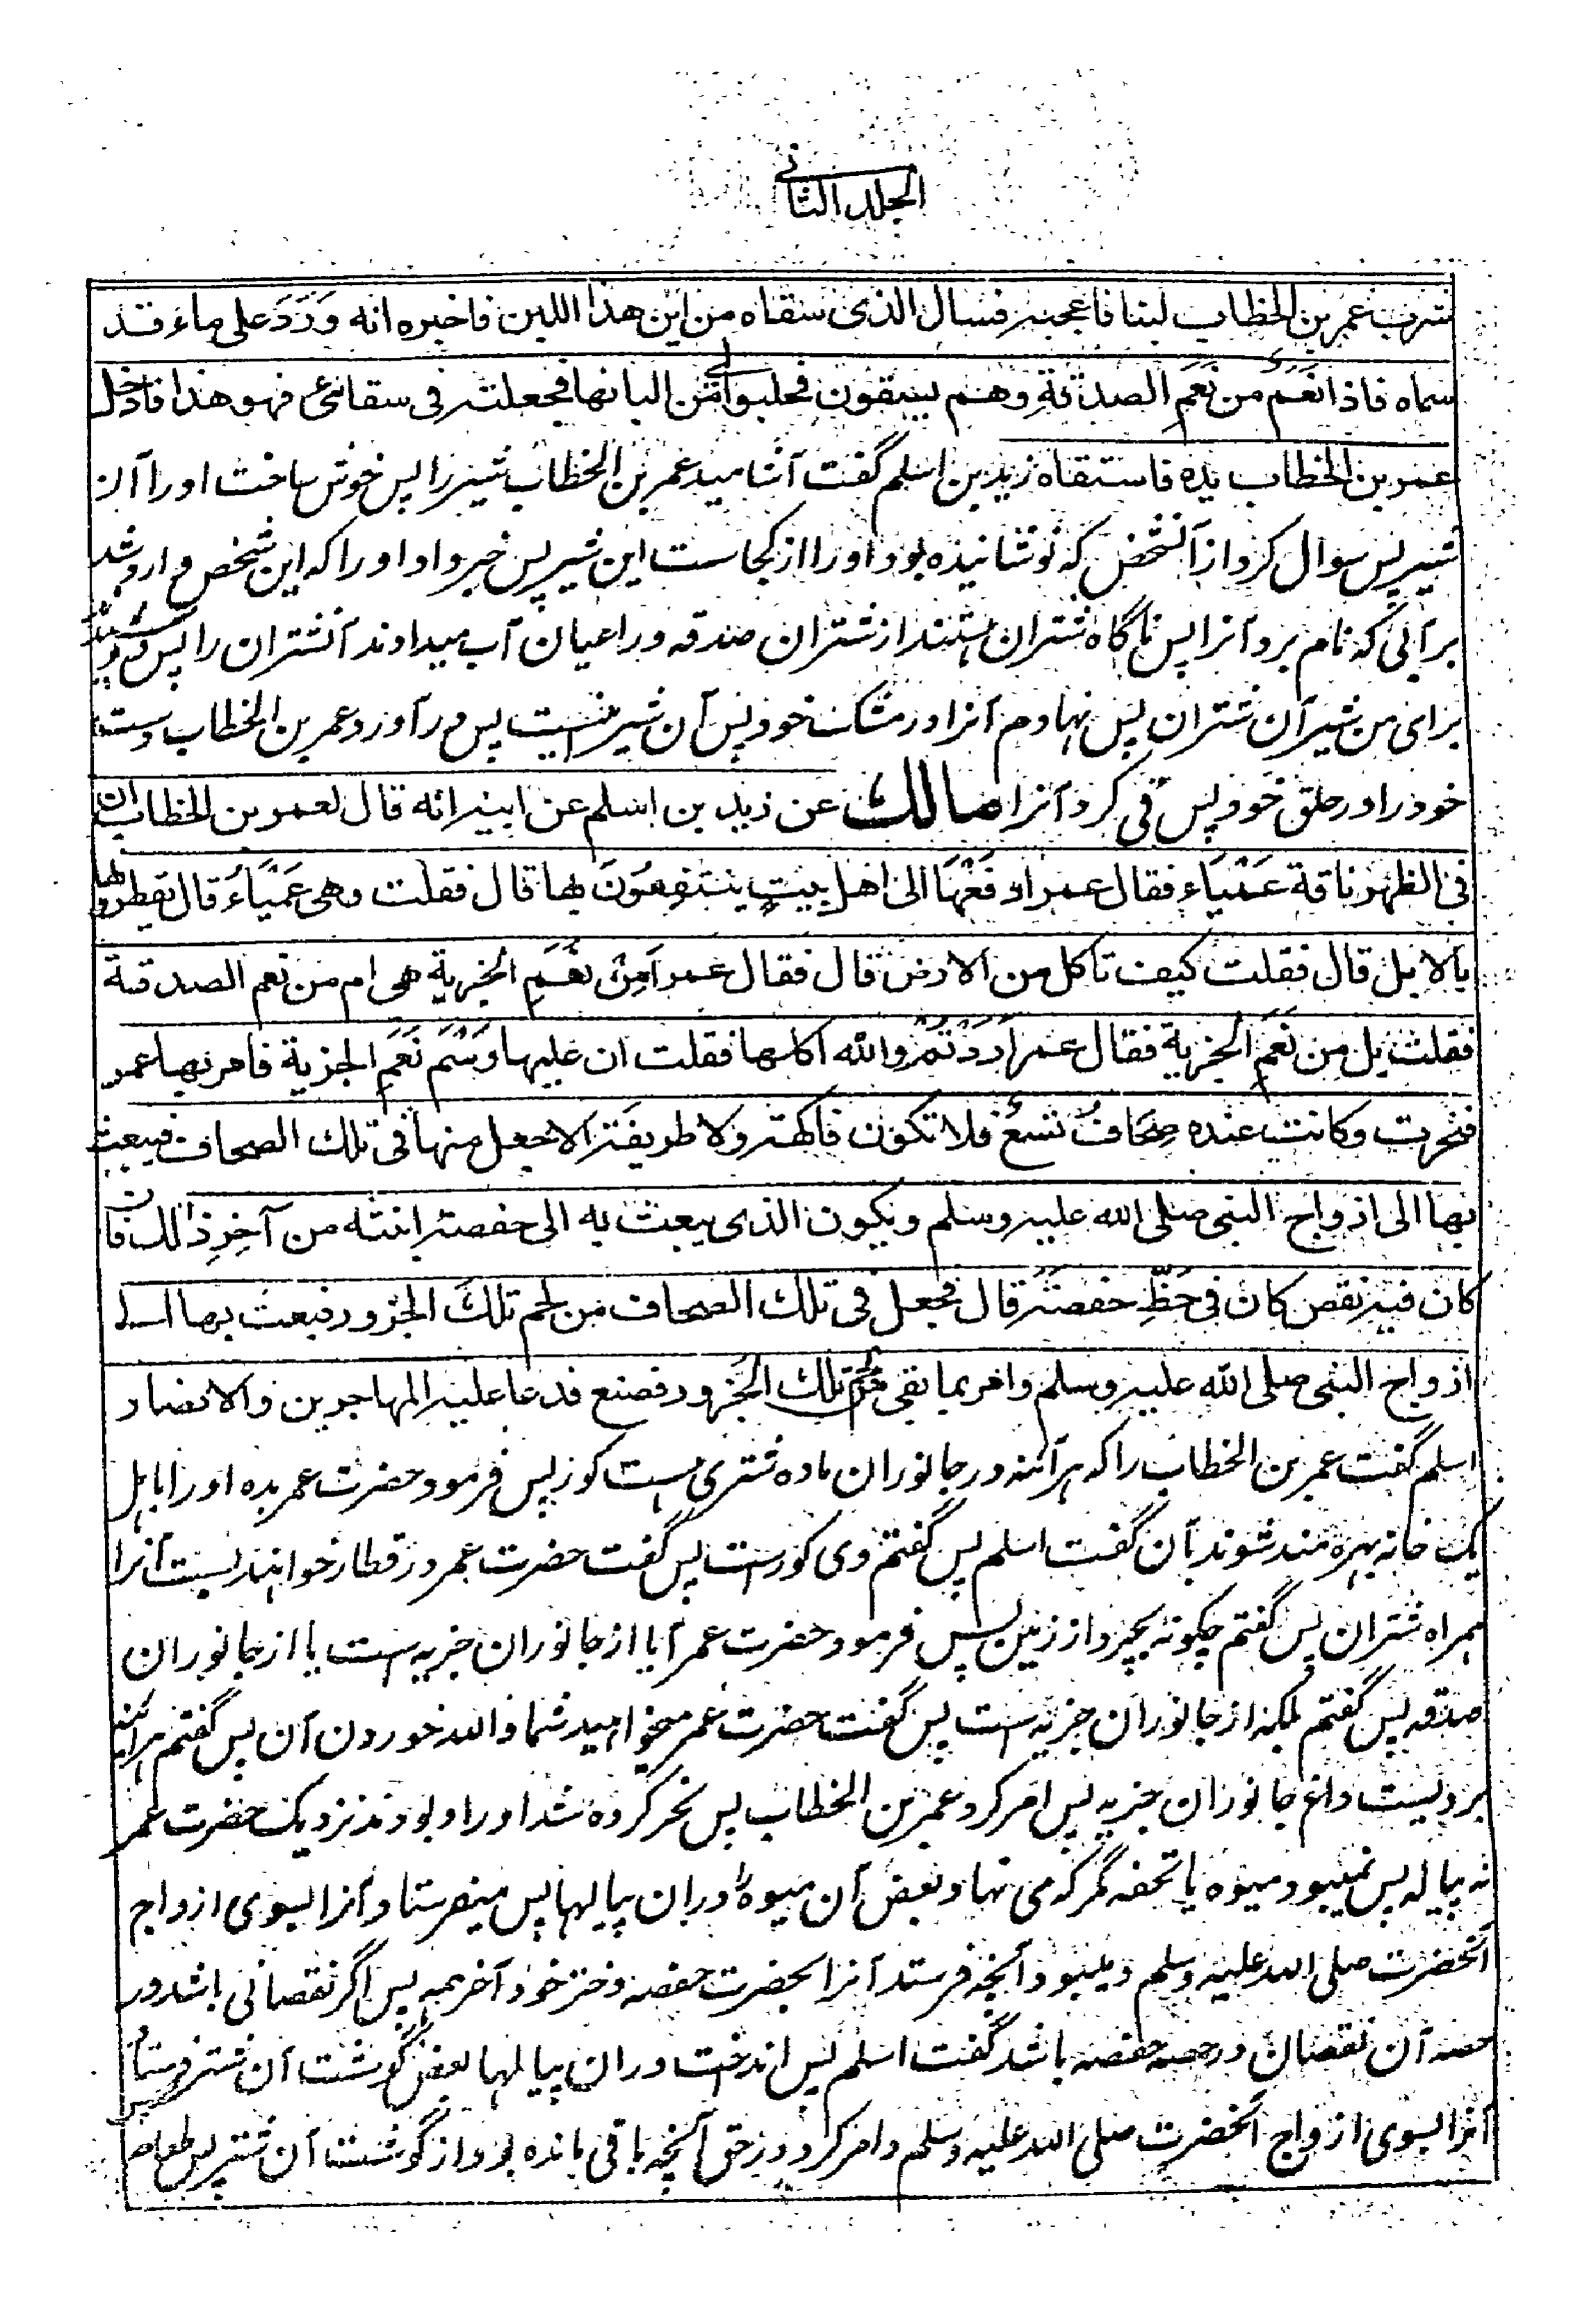 الجلد الثانی
شرب عمر بن الخطاب لبنا فاعجبه فسال الذی سقاه من این هذا اللبن فاخبره انه وَرَدَ علی ماء قد
سماه فاذا نَعَمٌ من نَعَمِ الصدقةِ وهم یسقون فحلبوا لی من البانها فجعلته فی سقائی فهو هذا فادخل
عمر بن الخطاب یده فاستقاه زید بن اسلم گفت آشامید عمر بن الخطاب شیر را پس خوش ساخت او را آن
شیر پس سوال کرد از آنشخص که نوشانیده بود او را از کجاست این شیر پس خبر داد او را که این شخص وارد شد
بر آبی که نام برد آنرا پس ناگاه شتران هستند از شتران صدقه و راعیان آب میدادند آنشتران را پس دوشیدند
برای من شیر آن شتران پس نهادم آنرا در مشک خود پس آن شیر اینست پس در آورد عمر بن الخطاب دست
خود را در حلق خود پس قی کرد آنرا مالك عن زید بن اسلم عن ابیه انه قال لعمر بن الخطاب ان
فی الظهر ناقة عَمْیَاء فقال عمر ادفَعْهَا الی اهل بیتٍ ینتفِعُونَ بها قال فقلت وهی عَمْیَاءُ قال یقطرونها
بالابل قال فقلت کیف تاکل من الارض قال فقال عمر اَمِنْ نَعَمِ الجزیة هی ام من نعم الصدقة
فقلت بل مِن نَعَمِ الجزیة فقال عمر اَرَدْتُمْ والله اکلها فقلت ان علیها وَسْمَ نَعَمِ الجزیة فامر بها عمر
فنحرت وکانت عنده صِحَافٌ تسعٌ فلا تکون فاکهة ولا طریفة الا جعل منها فی تلك الصحاف فیبعث
بها الی ازواج النبی صلی الله علیه وسلم ویکون الذی یبعث به الی حفصة ابنته من آخِرِ ذٰلك فان
کان فیه نقص کان فی حَظِّ حفصة قال فجعل فی تلك الصحاف من لحم تلكَ الجزور فبعث بها الی
ازواج النبی صلی الله علیه وسلم وامر بما بقی من لحم تلك الجَزور فصنع فدعا علیه المهاجرین والانصار
اسلم گفت عمر بن الخطاب را که هرآئنه در جانوران ماده شتری هست کور پس فرمود حضرت عمر بده او را باهل
یک خانه بهره مند شوند بآن گفت اسلم پس گفتم وی کورست پس گفت حضرت عمر در قطار خواهند بست آنرا
همراه شتران پس گفتم چگونه بچرد از زمین پس فرمود حضرت عمر آیا از جانوران جزیه است یا از جانوران
صدقه پس گفتم بلکه از جانوران جزیه است پس گفت حضرت عمر میخواهید شما والله خوردن آن پس گفتم هرآئنه
بر ویست داغ جانوران جزیه پس امر کرد عمر بن الخطاب پس نحر کرده شد او را و بودند نزدیک حضرت عمر
نه پیاله پس نمیبود میوه یا تحفه مگر که می نهاد بعض آن میوه را دران پیالها پس میفرستاد آنرا بسوی ازواج
آنحضرت صلی الله علیه وسلم و میبود آنچه فرستد آنرا بحضرت حفصه دختر خود آخر همه پس اگر نقصانی باشد در
حصه آن نقصان در حصه حفصه باشد گفت اسلم پس انداخت دران پیالها بعض گوشت آن شتر پس فرستاد
آنرا بسوی ازواج آنحضرت صلی الله علیه وسلم و امر کرد در حق آنچه باقی مانده بود از گوشت آن شتر پس طعام